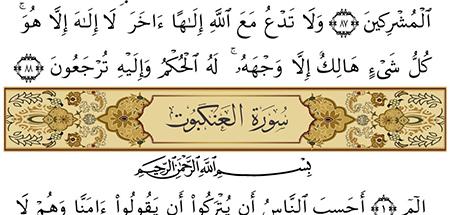 ٱلْمُشْرِكِينَ ﴿٨٧﴾ وَلَا تَدْعُ مَعَ ٱللَّهِ إِلَٰهًا ءَاخَرَ ۘ لَآ إِلَٰهَ إِلَّا هُوَ ۚ
كُلُّ شَىْءٍ هَالِكٌ إِلَّا وَجْهَهُۥ ۚ لَهُ ٱلْحُكْمُ وَإِلَيْهِ تُرْجَعُونَ ﴿٨٨﴾
سُورَةُ الْعَنْكَبُوت
بِسْمِ ٱللَّهِ ٱلرَّحْمَٰنِ ٱلرَّحِيمِ
الٓمٓ ﴿١﴾ أَحَسِبَ ٱلنَّاسُ أَن يُتْرَكُوٓا۟ أَن يَقُولُوٓا۟ ءَامَنَّا وَهُمْ لَا